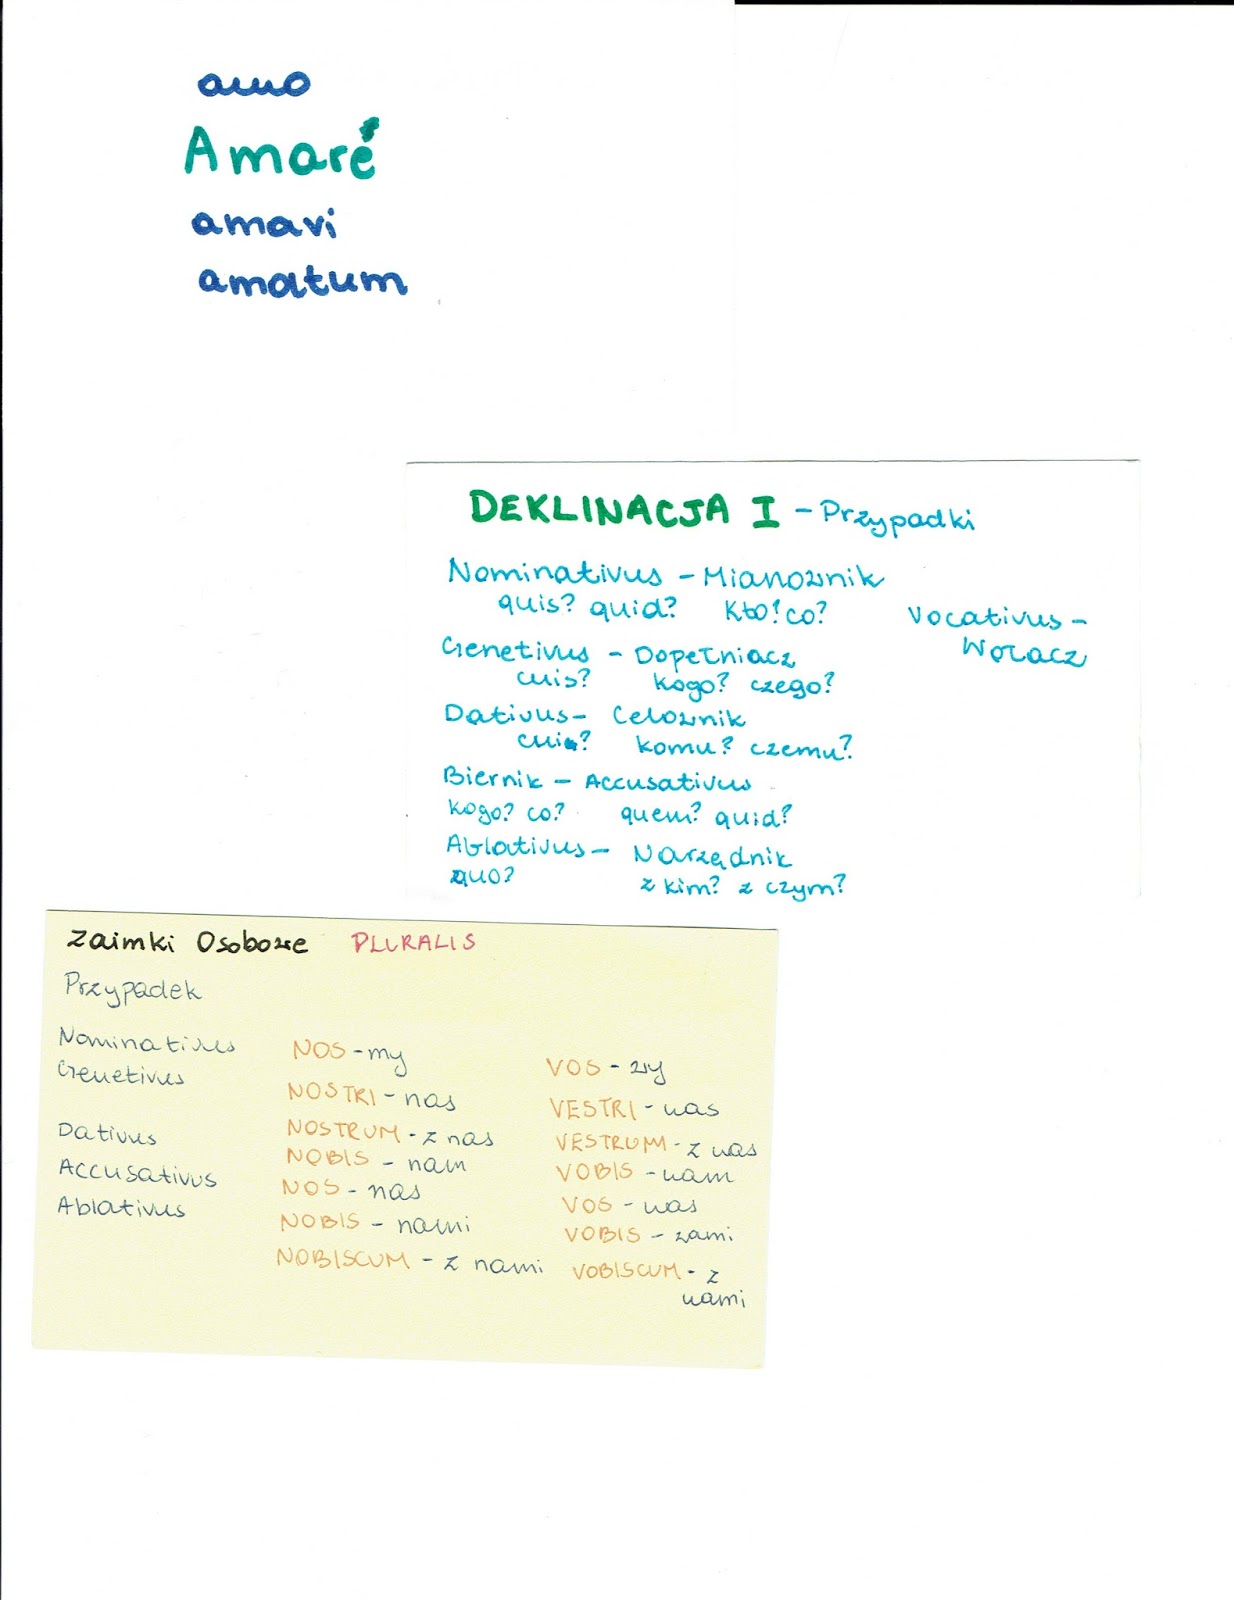 amo
Amare
amavi
amatum
DEKLINACJA I - Przypadki
Nominativus - Mianownik
quis? quid? Kto! co?
Vocativus - 
Wołacz
Genetivus - Dopełniacz
cuis? kogo? czego?
Dativus - Celownik
cui? komu? czemu?
Biernik - Accusativus
kogo? co? quem? quid?
Ablativus - Narzędnik
quo? z kim? z czym?
Zaimki Osobowe PLURALIS
Przypadek
Nominativus NOS - my VOS - wy
Genetivus NOSTRI - nas VESTRI - was
NOSTRUM - z nas VESTRUM - z was
Dativus NOBIS - nam VOBIS - wam
Accusativus NOS - nas VOS - was
Ablativus NOBIS - nami VOBIS - wami
NOBISCUM - z nami VOBISCUM - z
wami